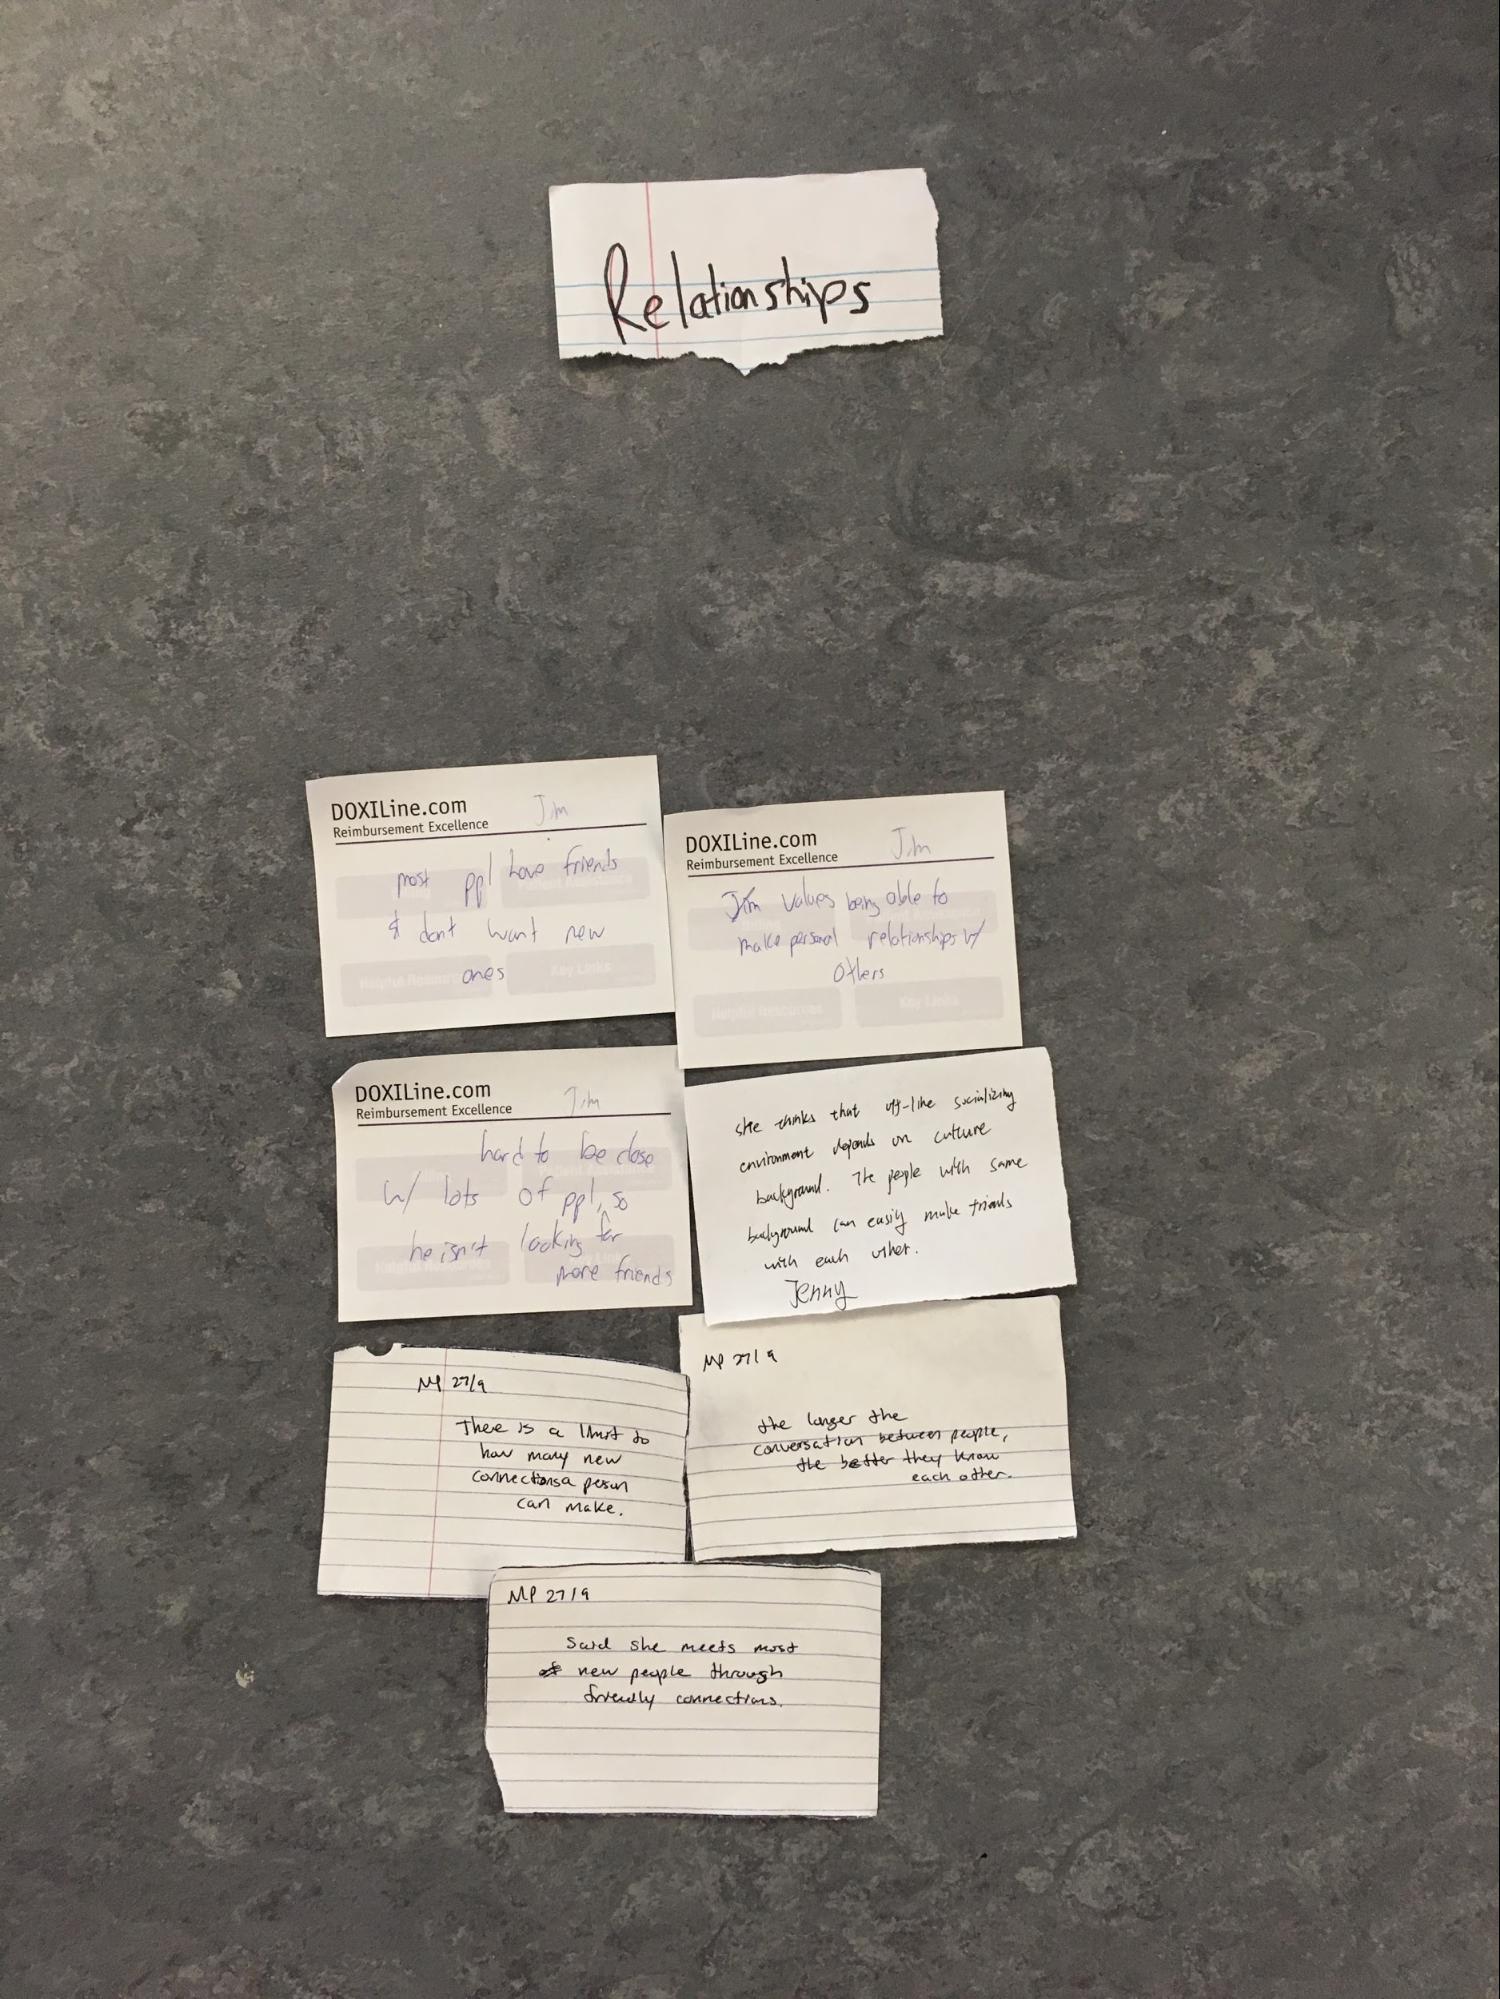 Relationships
DOXILine.com
Jim
Reimbursement Excellence
most ppl have friends
& dont want new
ones
Helpful Resources
Key Links
DOXILine.com
Jim
Reimbursement Excellence
Jim values being able to
make personal relationships w/
others
Helpful Resources
Key Links
DOXILine.com
Jim
Reimbursement Excellence
hard to be close
w/ lots of ppl, so
he isn't looking for
more friends
Helpful Resources
she thinks that off-line socializing
environment depends on culture
background. The people with same
background can easily make friends
with each other.
Jenny
MP 27/9
There is a limit to
how many new
connections a person
can make.
MP 27/9
the longer the
conversation between people,
the better they know
each other.
MP 27/9
Said she meets most
new people through
friendly connections.